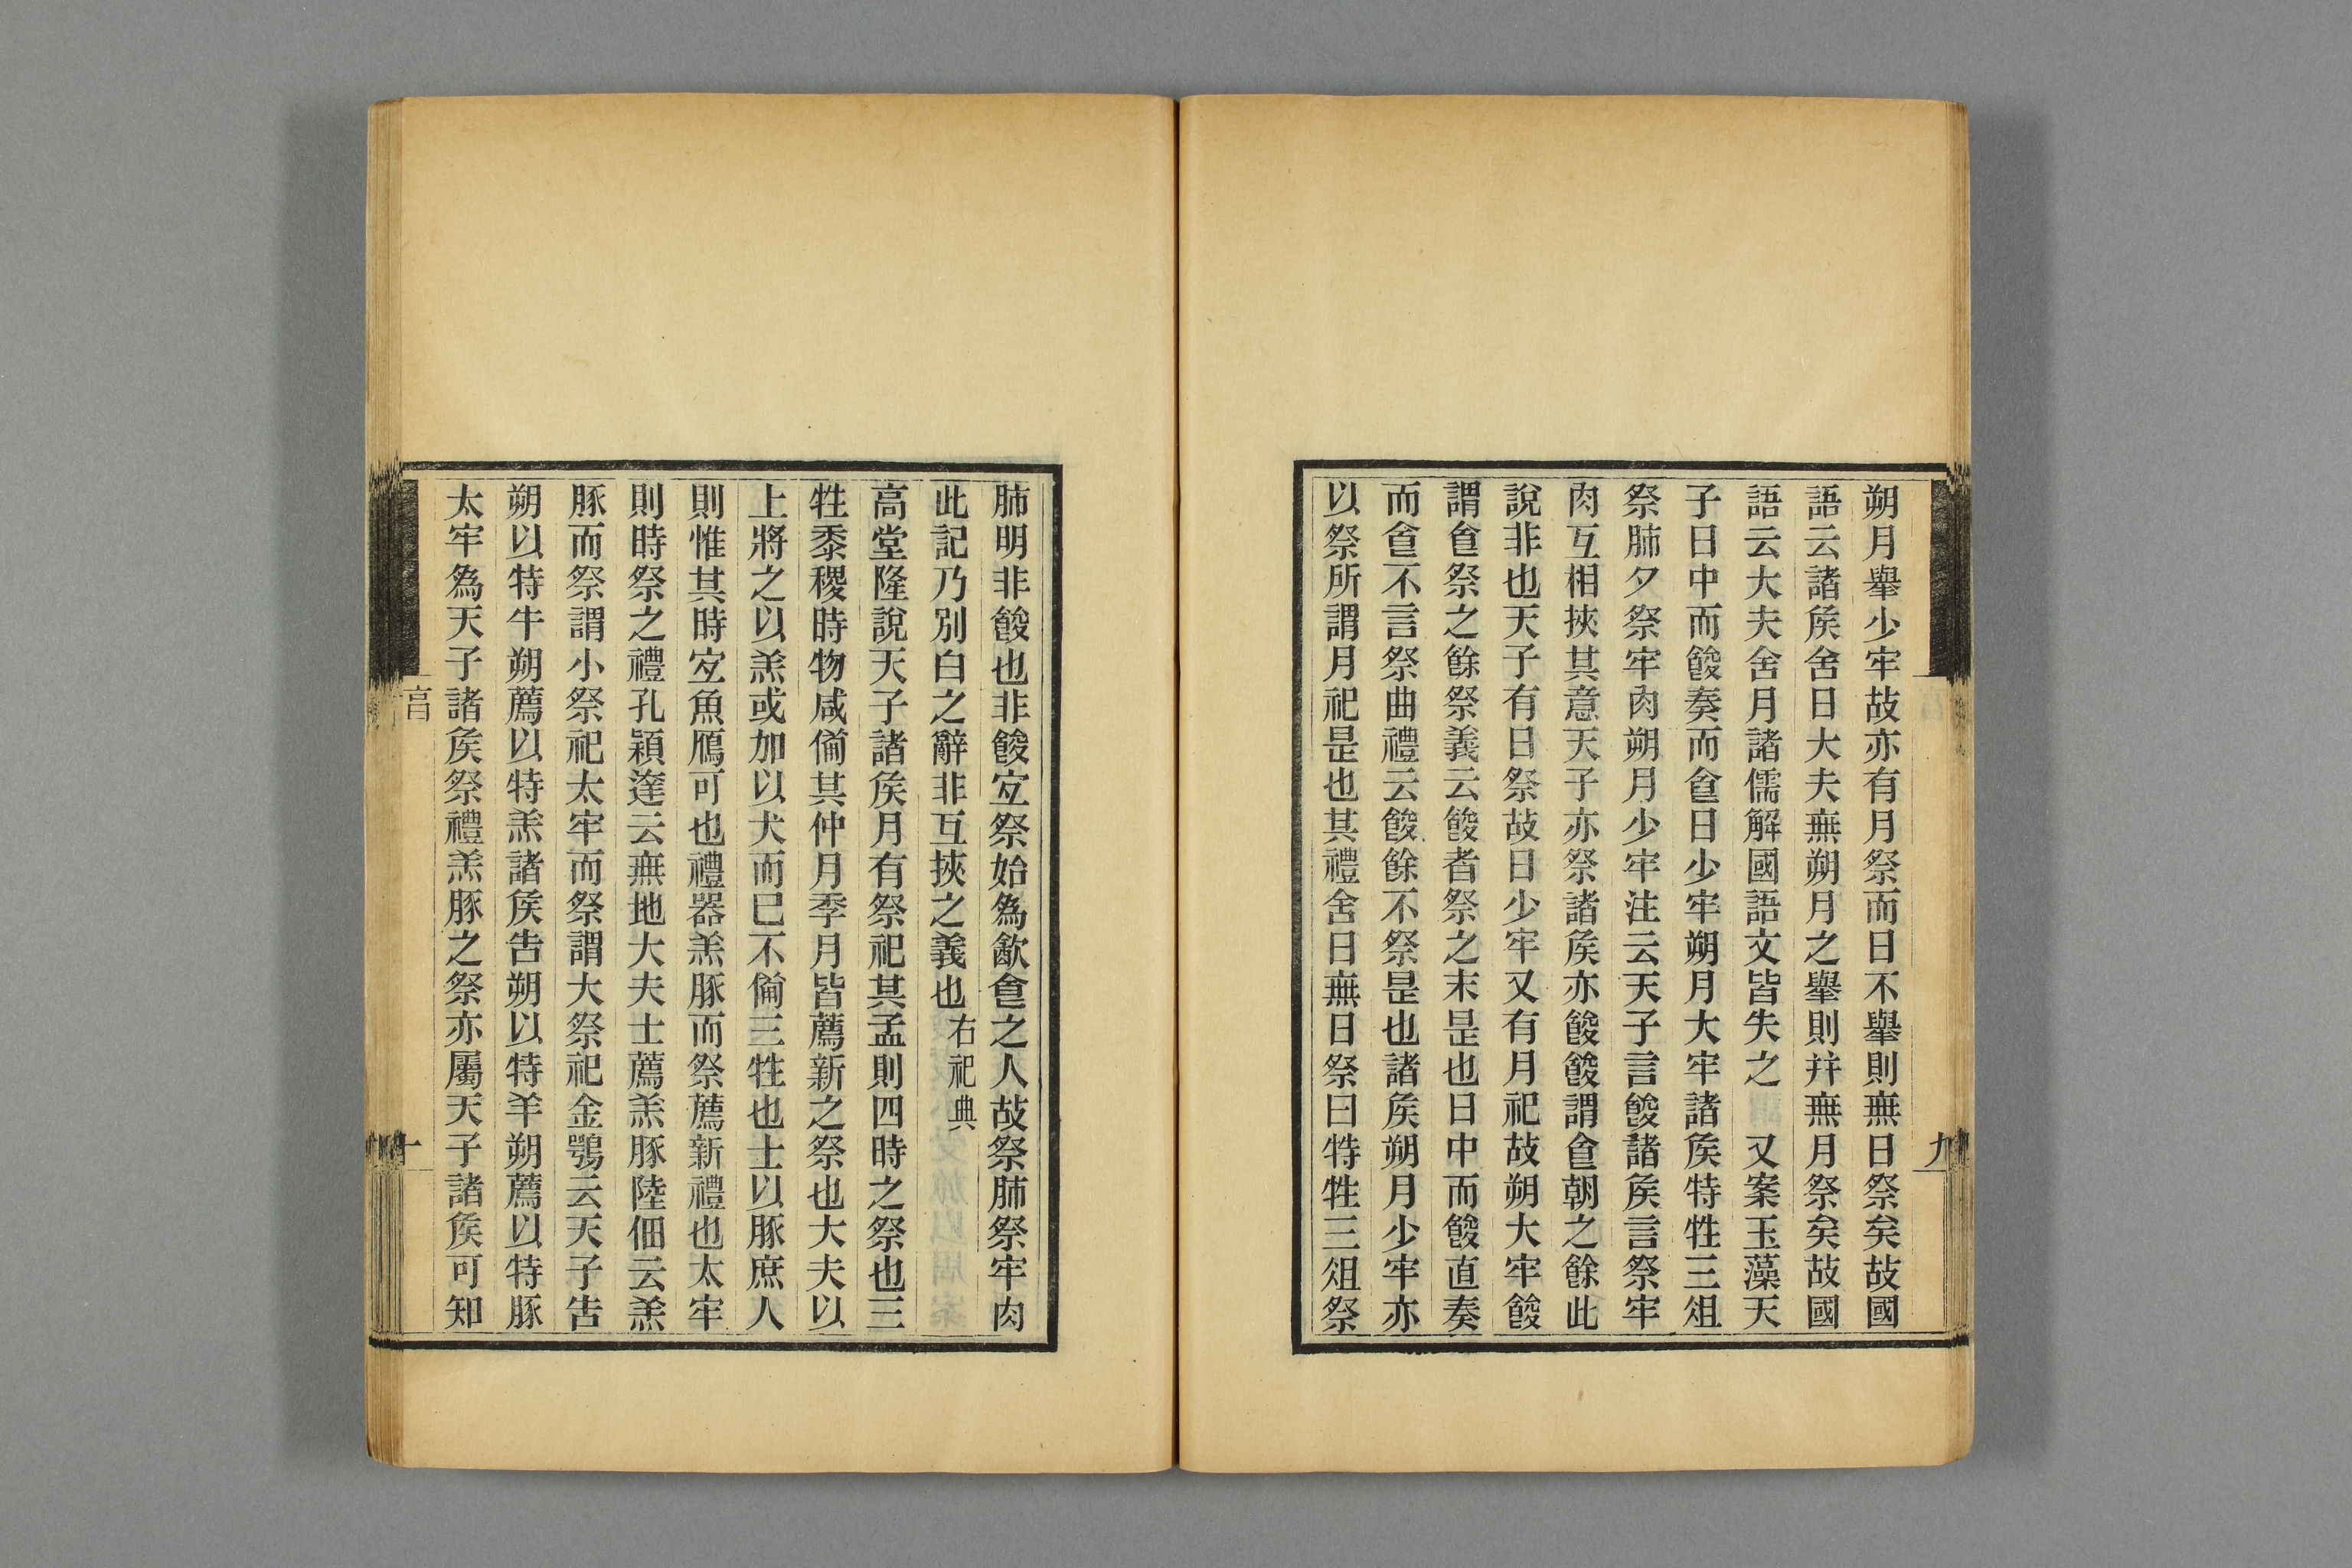 朔月擧少牢故亦有月祭而日不擧則無日祭矣故國
語云諸矦舍日大夫無朔月之擧則幷無月祭矣故國
語云大夫舍月諸儒解國語文皆失之　又案玉藻天
子日中而餕奏而㑹日少牢朔月大牢諸矦特牲三俎
祭肺夕祭牢肉朔月少牢注云天子言餕諸矦言祭牢
肉互相挾其意天子亦祭諸矦亦餕餕謂㑹朝之餘此
說非也天子有日祭故日少牢又有月祀故朔大牢餕
謂㑹祭之餘祭義云餕者祭之末是也日中而餕直奏
而㑹不言祭曲禮云餕餘不祭是也諸矦朔月少牢亦
以祭所謂月祀是也其禮舍日無日祭曰特牲三俎祭
肺明非餕也非餕宐祭始爲歠㑹之人故祭肺祭牢肉
此記乃別白之辭非互挾之義也右祀典
高堂隆說天子諸矦月有祭祀其孟則四時之祭也三
牲黍稷時物咸僃其仲月季月皆薦新之祭也大夫以
上將之以羔或加以犬而已不僃三牲也士以豚庶人
則惟其時宐魚鴈可也禮器羔豚而祭薦新禮也太牢
則時祭之禮孔穎達云無地大夫士薦羔豚陸佃云羔
豚而祭謂小祭祀太牢而祭謂大祭祀金鶚云天子告
朔以特牛朔薦以特羔諸矦告朔以特羊朔薦以特豚
太牢爲天子諸矦祭禮羔豚之祭亦屬天子諸矦可知
九
十